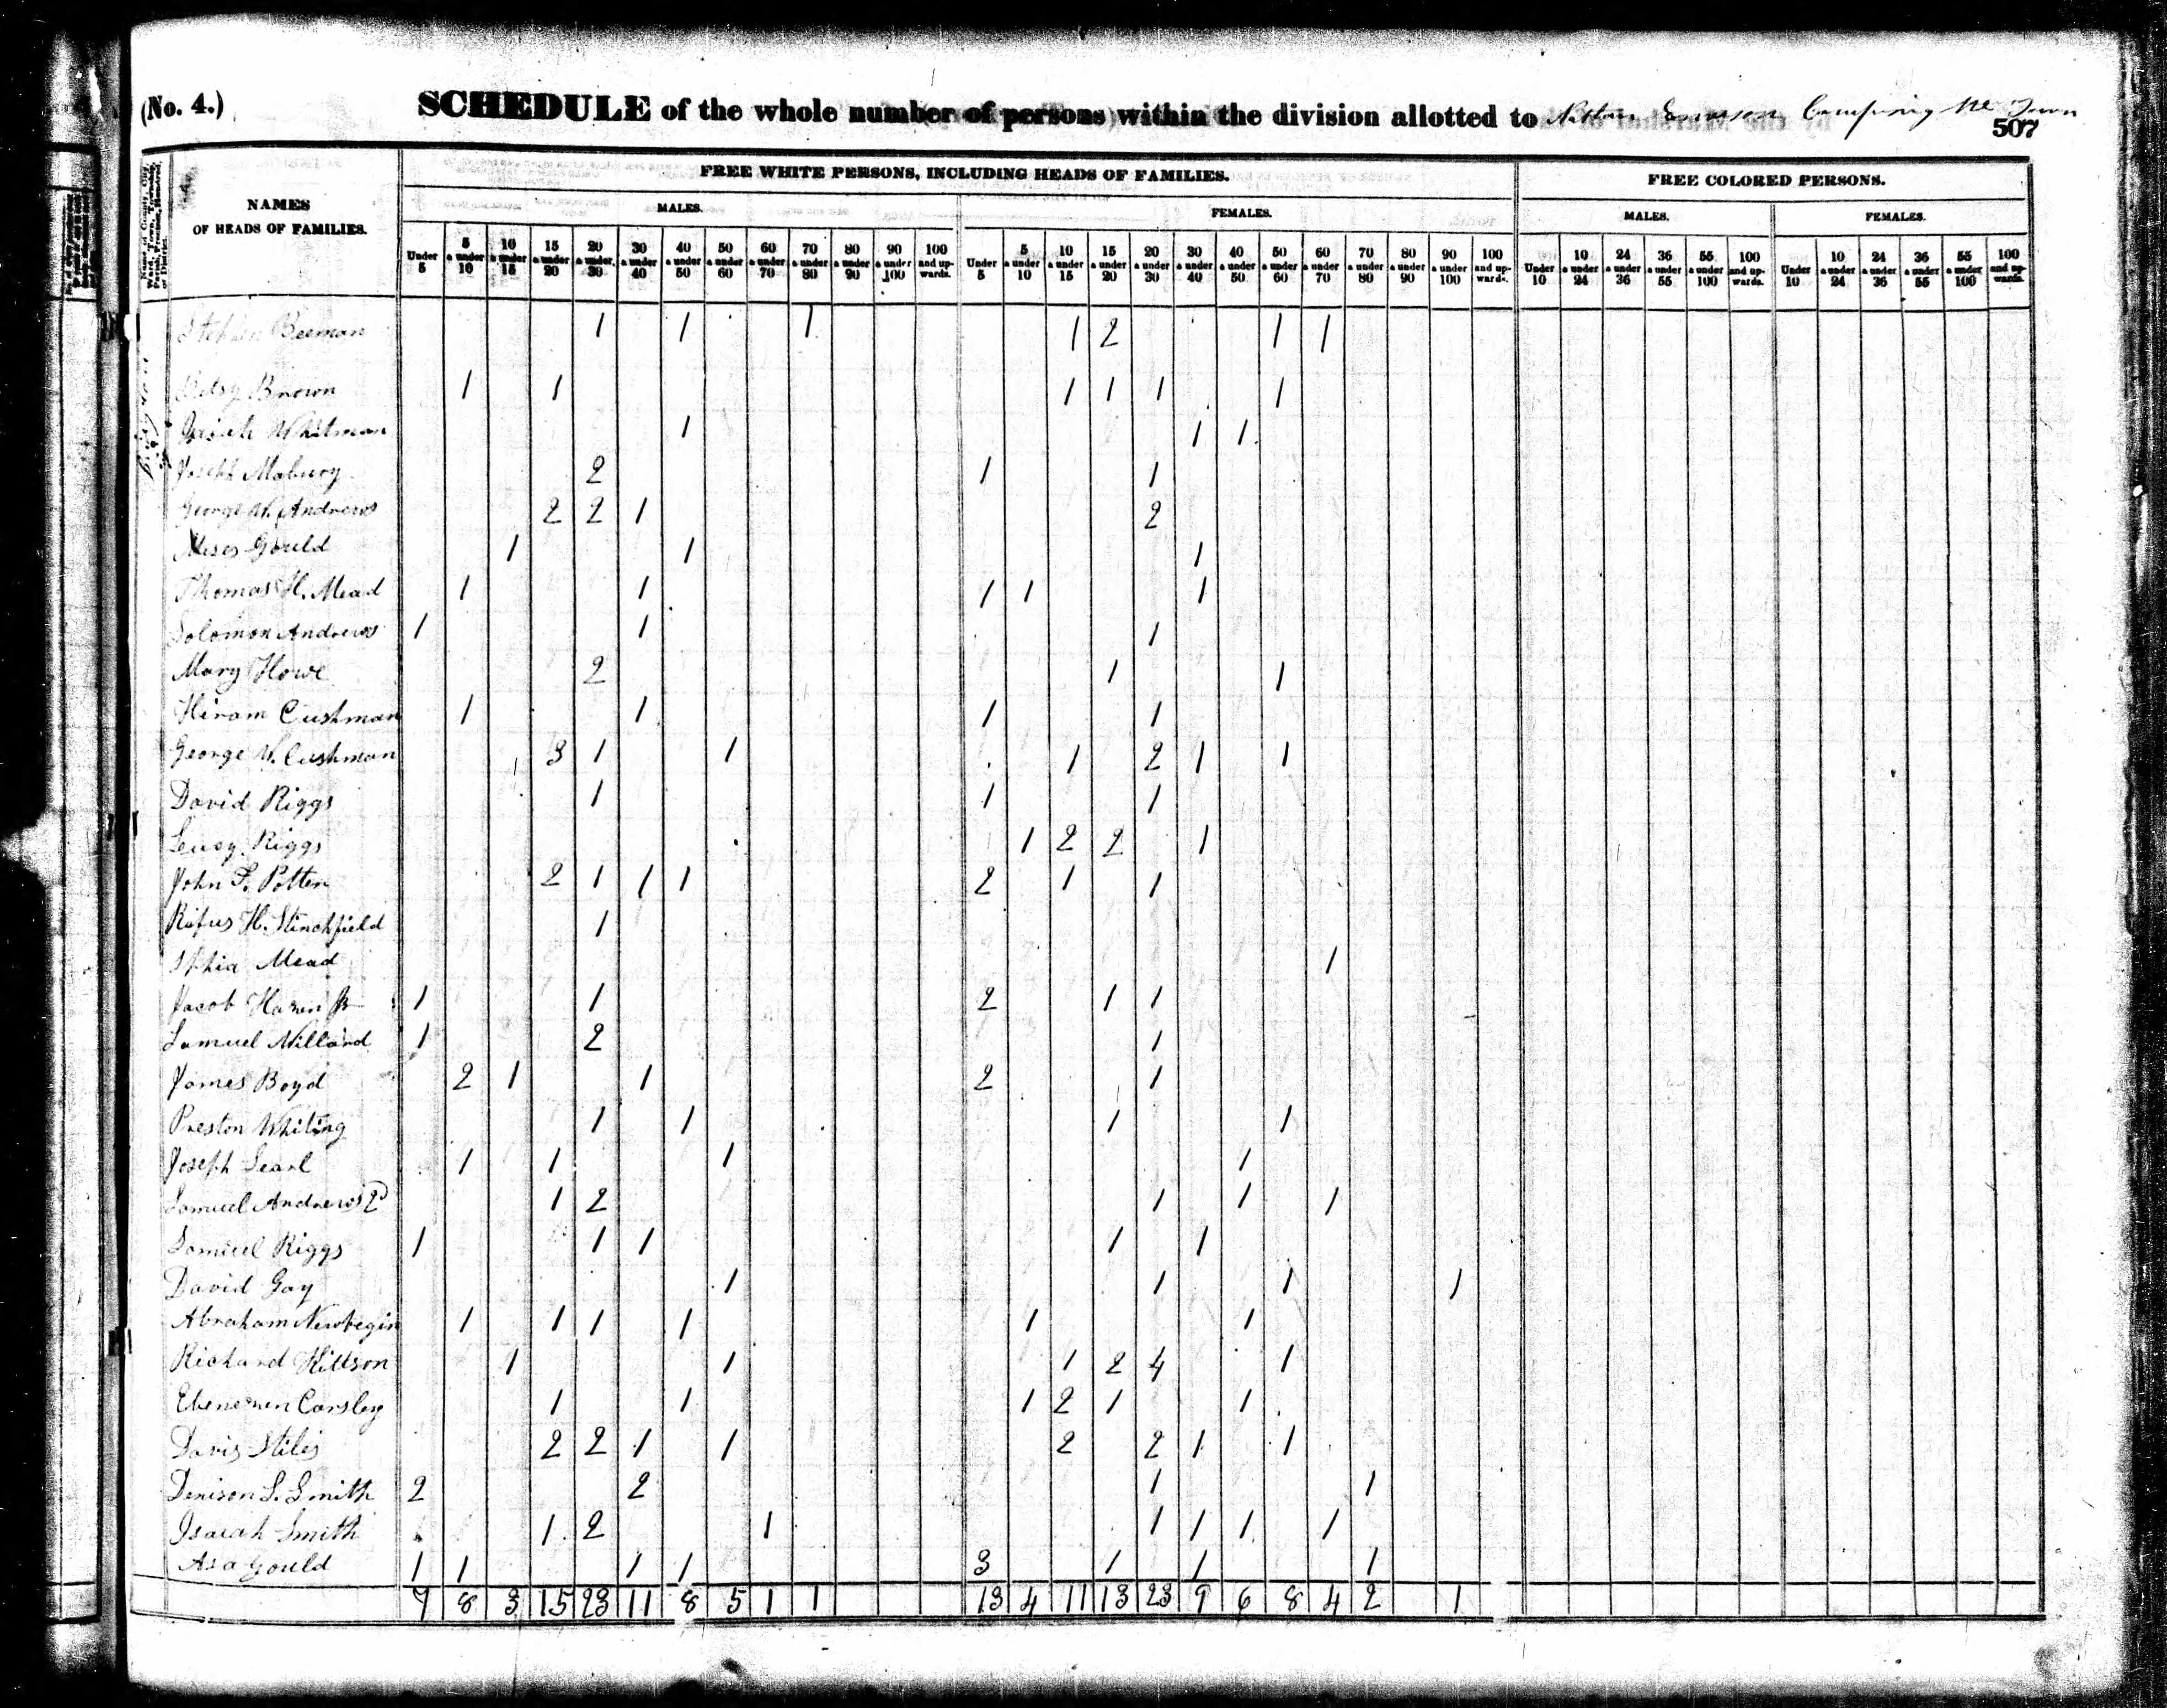 (No. 4.)
SCHEDULE of the whole number of persons within the division allotted to
507
NAMES OF HEADS OF FAMILIES.
FREE WHITE PERSONS, INCLUDING HEADS OF FAMILIES.
FREE COLORED PERSONS.
MALES. FEMALES. MALES. FEMALES.
Under 5 5 & under 10 10 & under 15 15 & under 20 20 & under 30 30 & under 40 40 & under 50 50 & under 60 60 & under 70 70 & under 80 80 & under 90 90 & under 100 100 and upwards. Under 5 5 & under 10 10 & under 15 15 & under 20 20 & under 30 30 & under 40 40 & under 50 50 & under 60 60 & under 70 70 & under 80 80 & under 90 90 & under 100 100 and upwards. Under 10 10 & under 24 24 & under 36 36 & under 55 55 & under 100 100 and upwards. Under 10 10 & under 24 24 & under 36 36 & under 55 55 & under 100 100 and upwards.
Stephen Beeman 1 1 1 1 2 1 1
Betsy Brown 1 1 1 1 1 1
Whitman 1 1 1
Joseph Mabury 2 1 1
George W. Andrews 2 2 1 2
Moses Gould 1 1 1
Thomas H. Mead 1 1 1 1 1
Solomon Andrews 1 1 1
Mary Howe 2 1 1
Hiram Cushman 1 1 1 1
George W. Cushman 1 3 1 1 1 2 1 1
David Riggs 1 1 1
Riggs 1 2 2 1
John F. Potter 2 1 1 1 2 1 1
Rufus H. Stinchfield 1
Mead 1
Jacob Hazen Jr 1 1 2 1 1
Samuel Millard 1 2 1
James Boyd 2 1 1 2 1
Preston Whiting 1 1 1 1
Joseph Searl 1 1 1 1
Samuel Andrews 2d 1 2 1 1 1
Samuel Riggs 1 1 1 1 1
David Gay 1 1 1 1
Abraham Newbegin 1 1 1 1 1 1
Richard Hittson 1 1 1 2 4 1
Ebenezer Carsley 1 1 1 2 1 1
Davis Stiles 2 2 1 1 2 2 1 1
Denison S. Smith 2 2 1 1
Isaiah Smith 1 2 1 1 1 1 1
Asa Gould 1 1 1 1 3 1 1 1
7 8 3 15 23 11 8 5 1 1 13 4 11 13 23 9 6 8 4 2 1